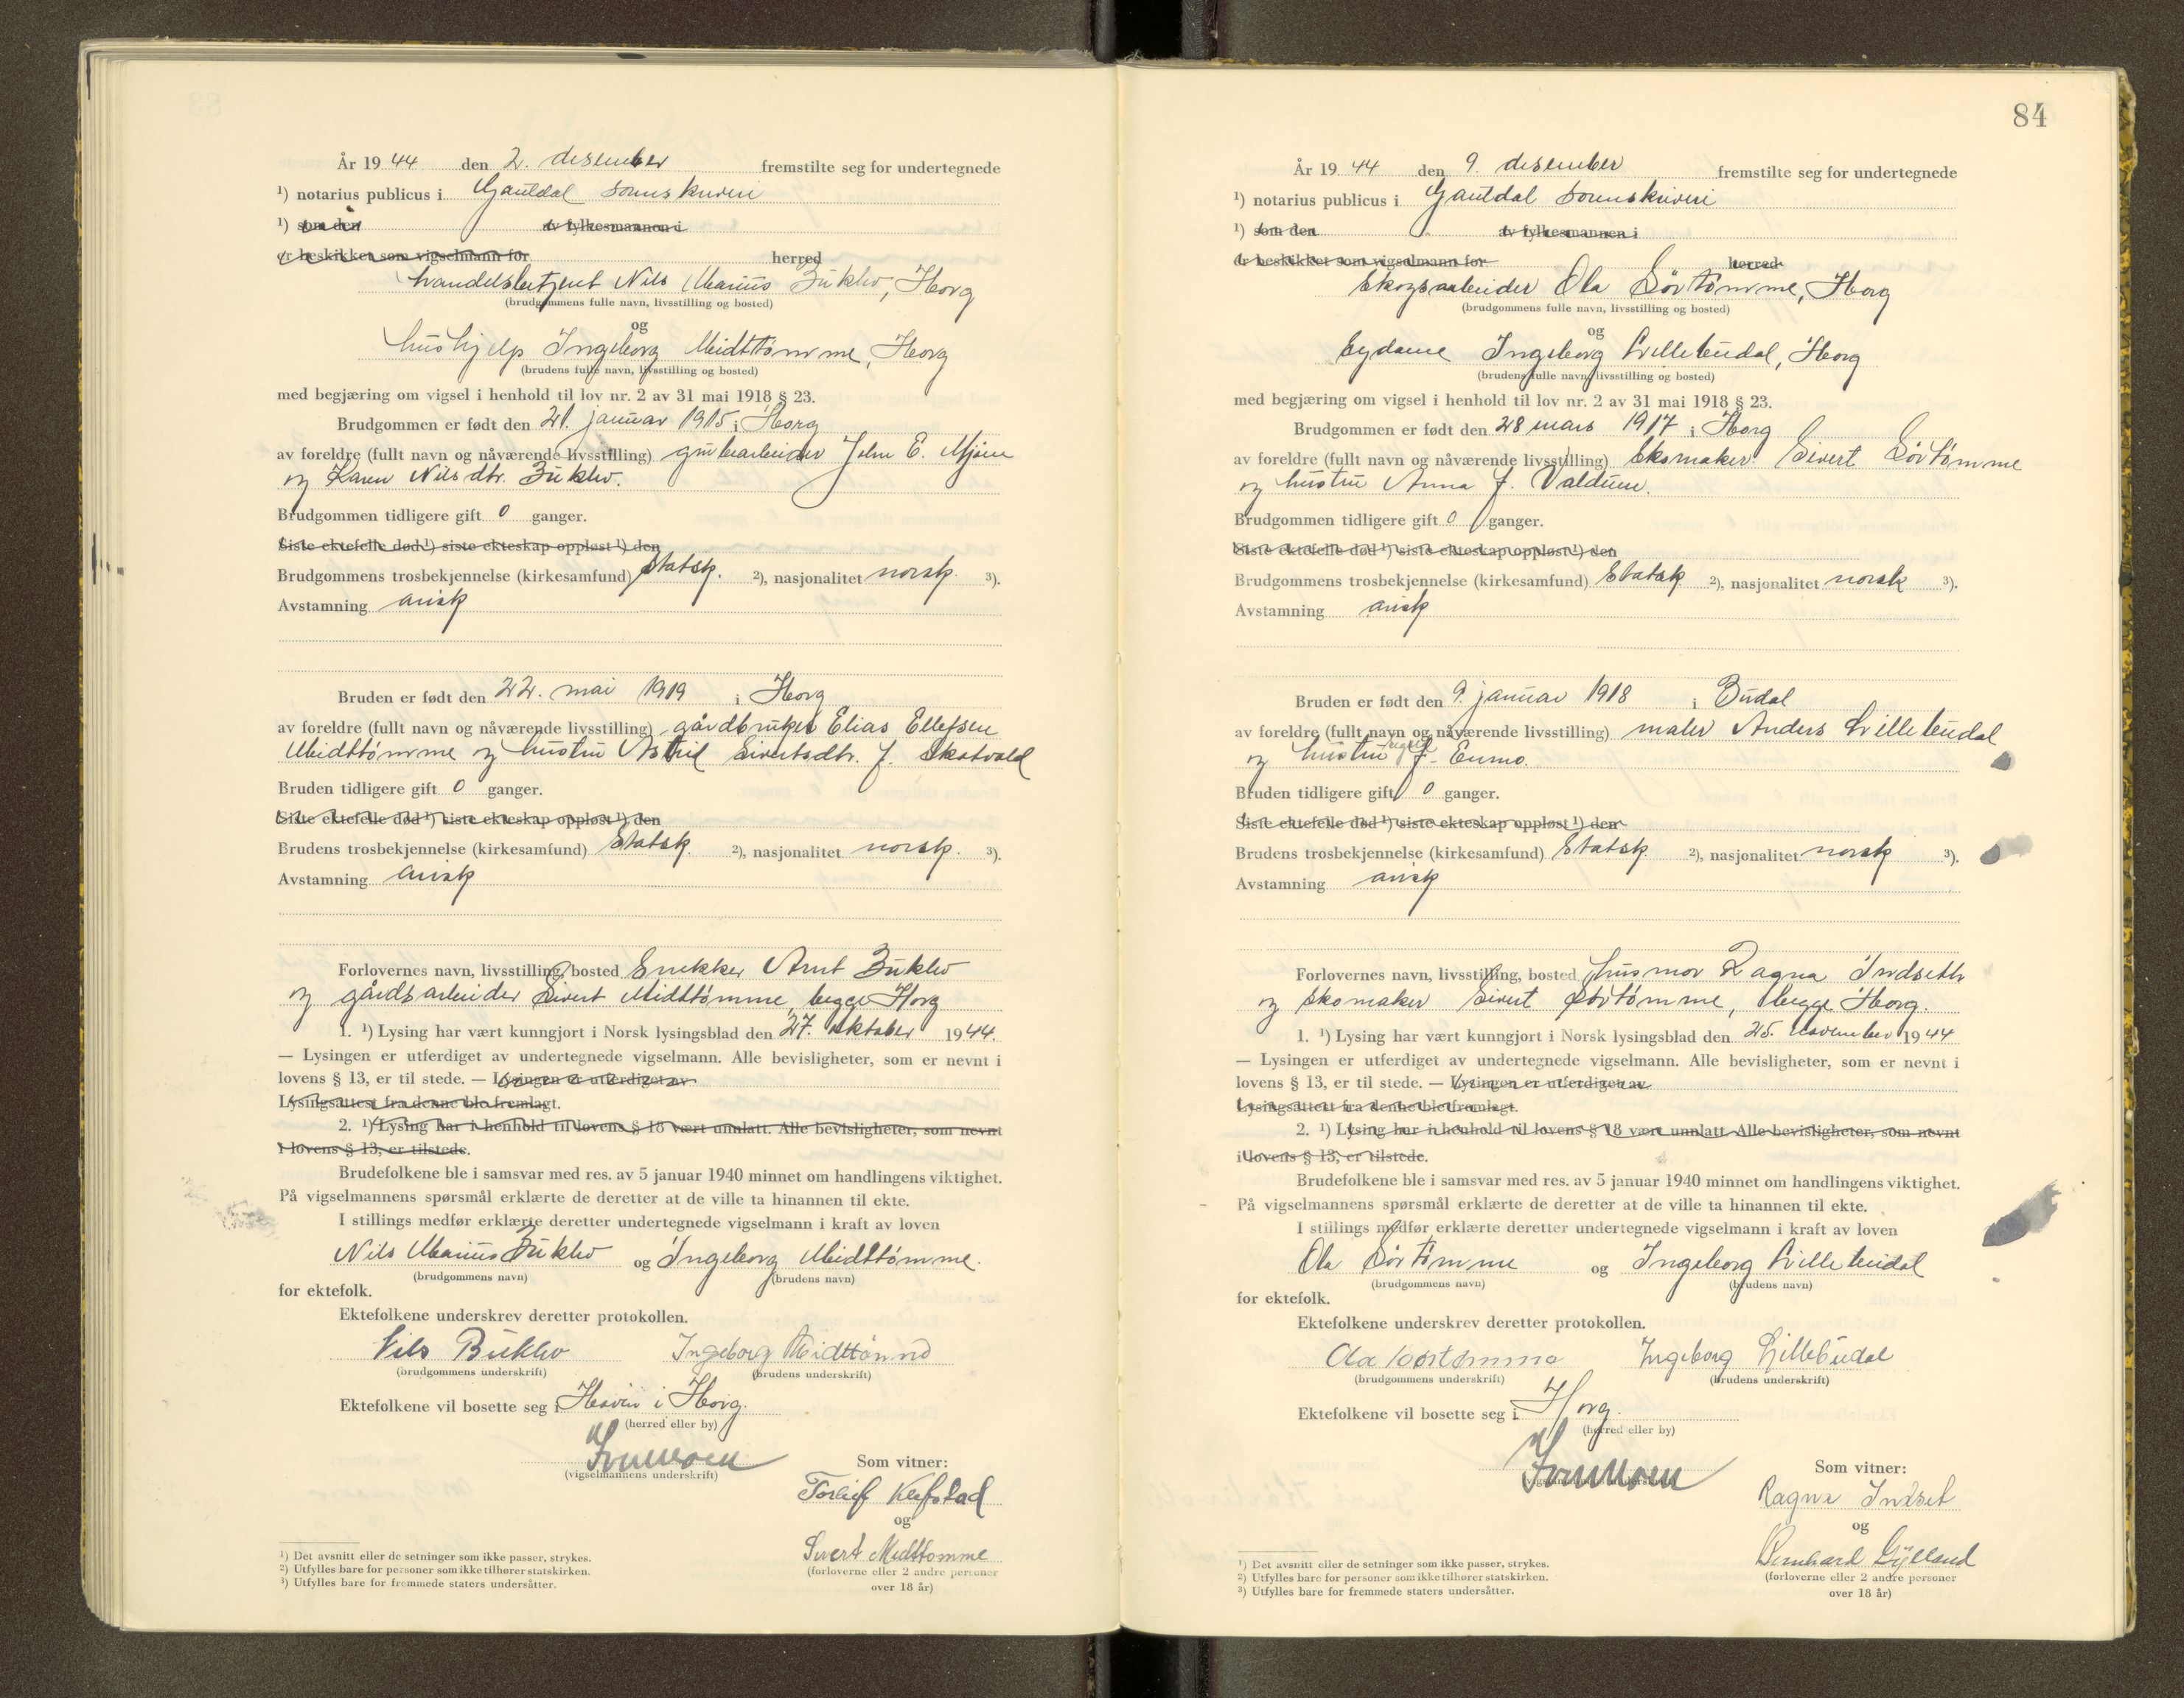 År 1944 den 2. desember fremstilte seg for undertegnede
¹) notarius publicus i Gauldal sorenskriveri
¹) som den av fylkesmannen i
er beskikket som vigselmann for herred
handelsbetjent Nils Marius Bukkvo, Horg
(brudgommens fulle navn, livsstilling og bosted)
og
hushjelp Ingeborg Midttømme, Horg
(brudens fulle navn, livsstilling og bosted)
med begjæring om vigsel i henhold til lov nr. 2 av 31 mai 1918 § 23.
Brudgommen er født den 21. januar 1915 i Horg
av foreldre (fullt navn og nåværende livsstilling) grubearbeider John E. Mjøen
og Karen Nilsdtr. Bukkvo.
Brudgommen tidligere gift 0 ganger.
Siste ektefelle død ¹) siste ekteskap oppløst ¹) den
Brudgommens trosbekjennelse (kirkesamfund) Statsk. ²), nasjonalitet norsk. ³).
Avstamning arisk
Bruden er født den 22. mai 1919 i Horg
av foreldre (fullt navn og nåværende livsstilling) gårdbruker Elias Ellefsen
Midttømme og hustru Astrid Sivertsdtr. f. Skatvold
Bruden tidligere gift 0 ganger.
Siste ektefelle død ¹) siste ekteskap oppløst ¹) den
Brudens trosbekjennelse (kirkesamfund) Statsk. ²), nasjonalitet norsk. ³).
Avstamning arisk
Forlovernes navn, livsstilling, bosted Snekker Arnt Bukkvo
og gårdsarbeider Sivert Midttømme, begge Horg
1. ¹) Lysing har vært kunngjort i Norsk lysingsblad den 27. oktober 1944.
— Lysingen er utferdiget av undertegnede vigselmann. Alle bevisligheter, som er nevnt i
lovens § 13, er til stede. — Lysingen er utferdiget av
Lysingsattest fra denne ble fremlagt.
2. ¹) Lysing har i henhold til lovens § 18 vært unnlatt. Alle bevisligheter, som nevnt
i lovens § 13, er tilstede.
Brudefolkene ble i samsvar med res. av 5 januar 1940 minnet om handlingens viktighet.
På vigselmannens spørsmål erklærte de deretter at de ville ta hinannen til ekte.
I stillings medfør erklærte deretter undertegnede vigselmann i kraft av loven
Nils Marius Bukkvo og Ingeborg Midttømme.
(brudgommens navn) (brudens navn)
for ektefolk.
Ektefolkene underskrev deretter protokollen.
Nils Bukkvo Ingeborg Midttømme
(brudgommens underskrift) (brudens underskrift)
Ektefolkene vil bosette seg i Hovin i Horg.
(herred eller by)
(vigselmannens underskrift)
Som vitner:
Torleif Klefstad
og
Sivert Midttømme
(forloverne eller 2 andre personer
over 18 år)
¹) Det avsnitt eller de setninger som ikke passer, strykes.
²) Utfylles bare for personer som ikke tilhører statskirken.
³) Utfylles bare for fremmede staters undersåtter.
84
År 1944 den 9. desember fremstilte seg for undertegnede
¹) notarius publicus i Gauldal sorenskriveri
¹) som den av fylkesmannen i
er beskikket som vigselmann for herred
Skogsarbeider Ola Sørtømme, Horg
(brudgommens fulle navn, livsstilling og bosted)
og
Sydame Ingeborg Lillebudal, Horg
(brudens fulle navn, livsstilling og bosted)
med begjæring om vigsel i henhold til lov nr. 2 av 31 mai 1918 § 23.
Brudgommen er født den 28 mars 1917 i Horg
av foreldre (fullt navn og nåværende livsstilling) Skomaker Sivert Sørtømme
og hustru Anna f. Valdum.
Brudgommen tidligere gift 0 ganger.
Siste ektefelle død ¹) siste ekteskap oppløst ¹) den
Brudgommens trosbekjennelse (kirkesamfund) Statsk ²), nasjonalitet norsk ³).
Avstamning arisk
Bruden er født den 9. januar 1918 i Budal
av foreldre (fullt navn og nåværende livsstilling) maler Anders Lillebudal
og hustru f. Enmo.
Bruden tidligere gift 0 ganger.
Siste ektefelle død ¹) siste ekteskap oppløst ¹) den
Brudens trosbekjennelse (kirkesamfund) Statsk. ²), nasjonalitet norsk ³).
Avstamning arisk
Forlovernes navn, livsstilling, bosted husmor Ragna Indseth
og skomaker Sivert Sørtømme, begge Horg.
1. ¹) Lysing har vært kunngjort i Norsk lysingsblad den 25. november 1944
— Lysingen er utferdiget av undertegnede vigselmann. Alle bevisligheter, som er nevnt i
lovens § 13, er til stede. — Lysingen er utferdiget av
Lysingsattest fra denne ble fremlagt.
2. ¹) Lysing har i henhold til lovens § 18 vært unnlatt. Alle bevisligheter, som nevnt
i lovens § 13, er tilstede.
Brudefolkene ble i samsvar med res. av 5 januar 1940 minnet om handlingens viktighet.
På vigselmannens spørsmål erklærte de deretter at de ville ta hinannen til ekte.
I stillings medfør erklærte deretter undertegnede vigselmann i kraft av loven
Ola Sørtømme og Ingeborg Lillebudal
(brudgommens navn) (brudens navn)
for ektefolk.
Ektefolkene underskrev deretter protokollen.
Ola Sørtømme Ingeborg Lillebudal
(brudgommens underskrift) (brudens underskrift)
Ektefolkene vil bosette seg i Horg.
(herred eller by)
(vigselmannens underskrift)
Som vitner:
Ragna Indset
og
Bernhard Gylland
(forloverne eller 2 andre personer
over 18 år)
¹) Det avsnitt eller de setninger som ikke passer, strykes.
²) Utfylles bare for personer som ikke tilhører statskirken.
³) Utfylles bare for fremmede staters undersåtter.